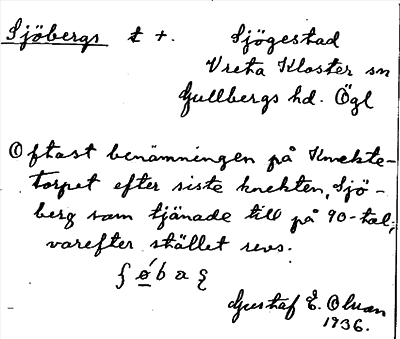 Sjöbergs t +. Sjögestad
Vreta Kloster sn
Gullbergs hd. Ögl
Oftast benämningen på Knekte-
torpet efter siste knekten, Sjö-
berg som tjänade till på 90-tal,
varefter stället revs.
Gustaf E. Olsson
1936.